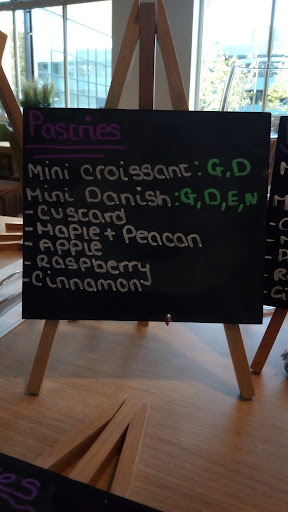 Pastries
Mini Croissant: G,D
Mini Danish: G,D,E,N
- Custard
- Maple + Peacan
- Apple
- Raspberry
- Cinnamon